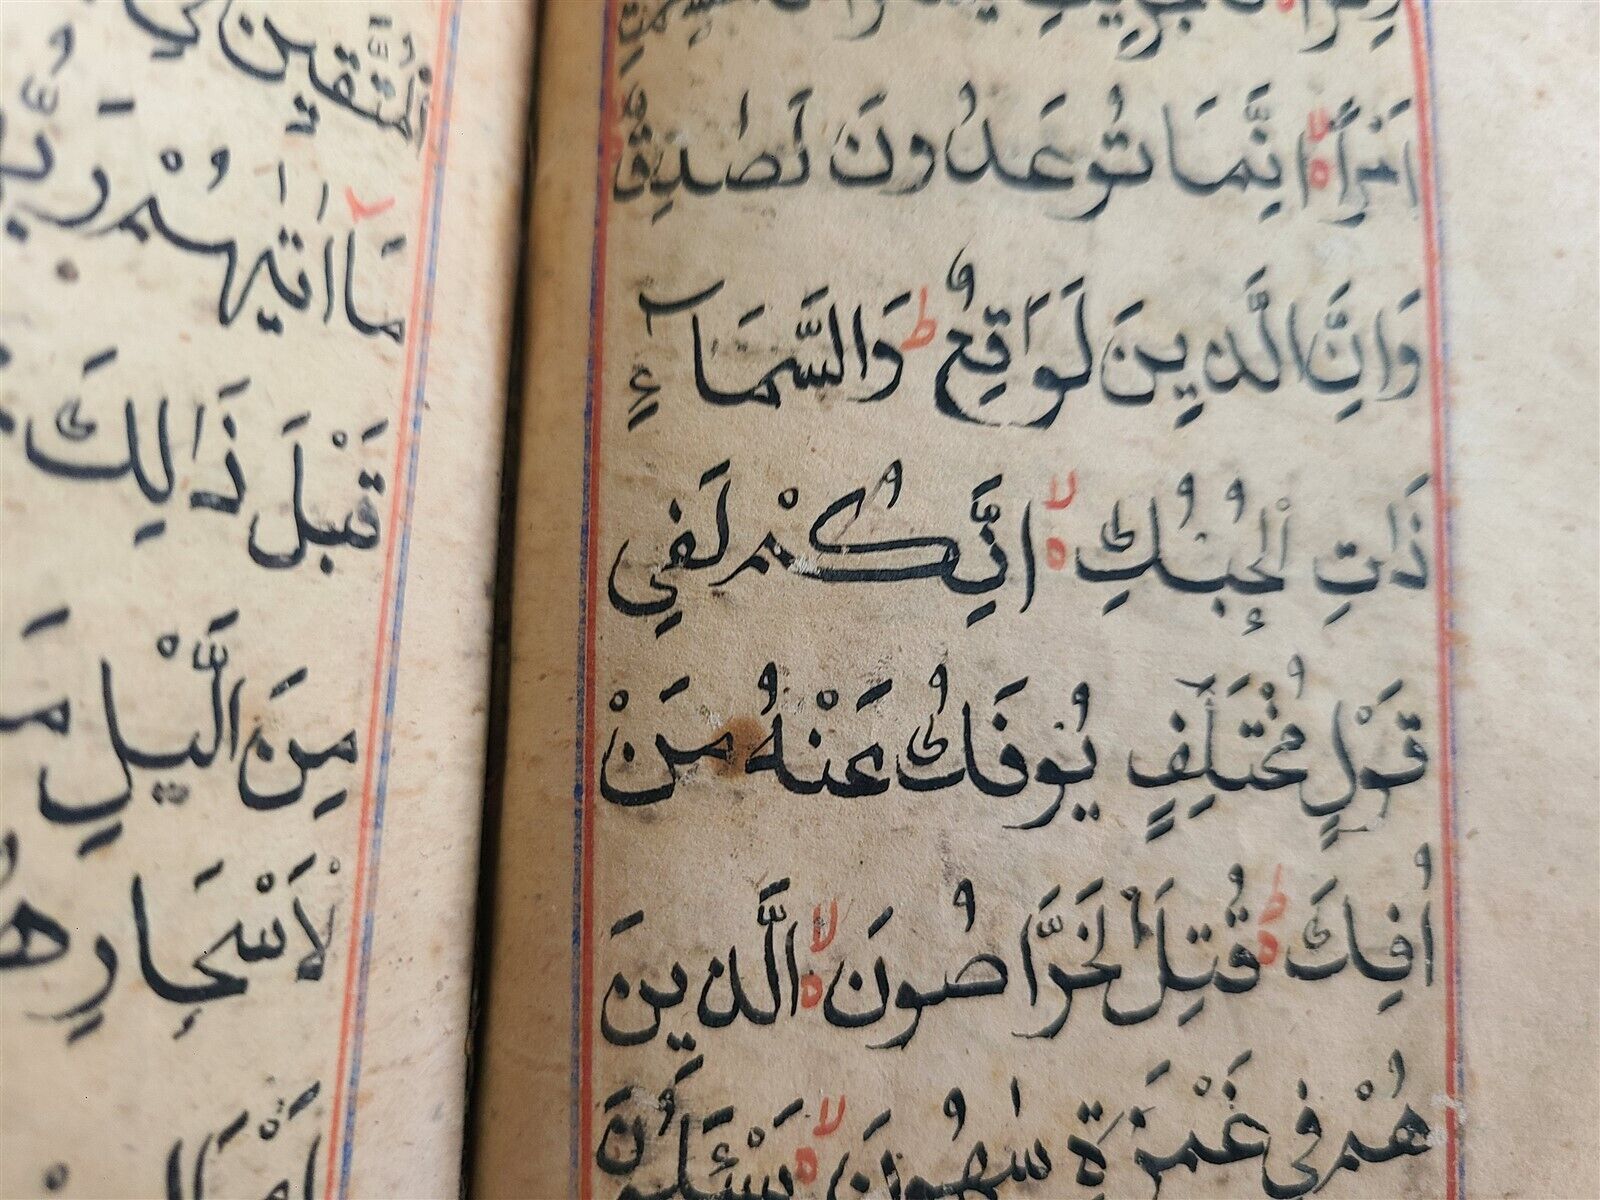 اَمْرًا ۙ اِنَّمَا تُوعَدُونَ لَصٰدِقٌ
وَاِنَّ الَّدِينَ لَوَاقِعٌ ط وَالسَّمَآءِ
ذَاتِ الْحُبُكِ ۙ اِنَّكُمْ لَفِي
قَوْلٍ مُّخْتَلِفٍ يُوفَكُ عَنْهُ مَنْ
اُفِكَ ط قُتِلَ الْخَرَّاصُونَ ۙ الَّذِينَ
هُمْ فِي غَمْرَةٍ سٰهُونَ ۙ يَسْئَلُونَ
الْمُتَّقِينَ
مَآ اٰتٰيهُمْ رَبُّ
قَبْلَ ذَالِكَ
مِنَ الَّيْلِ
لْاَسْحَارِ